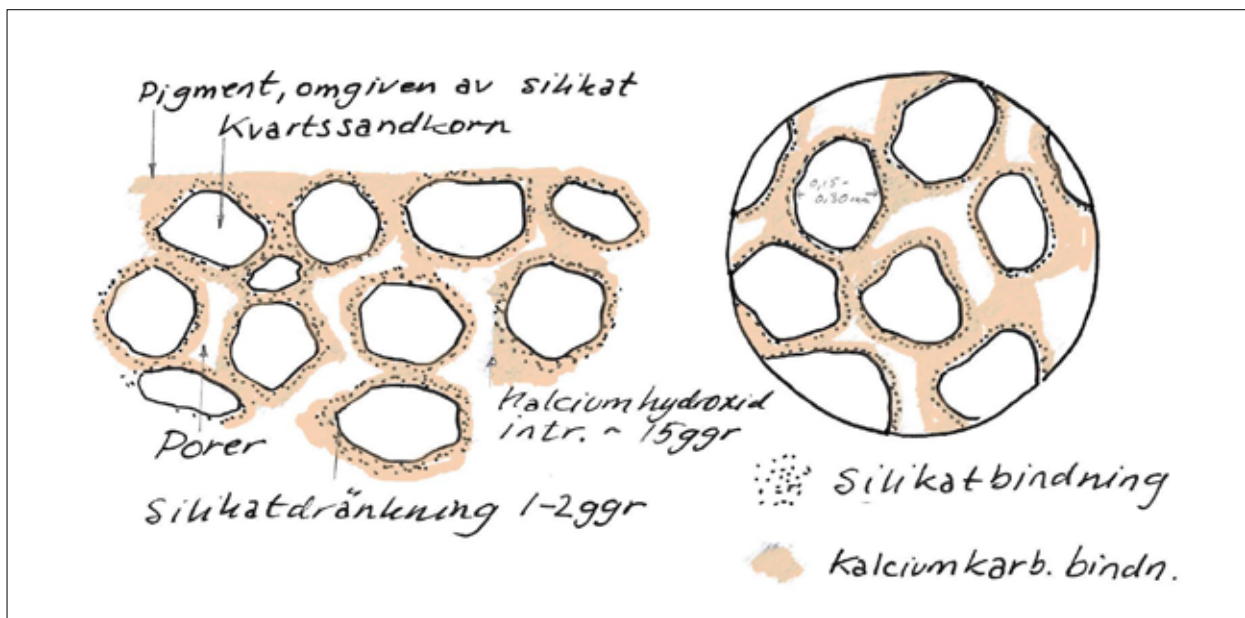 Pigment, omgiven av silikat
Kvartssandkorn
0,15-
0,30mm
Kalciumhydroxid
intr. ~ 15ggr
Porer
Silikatdränkning 1-2ggr
Silikatbindning
Kalciumkarb. bindn.